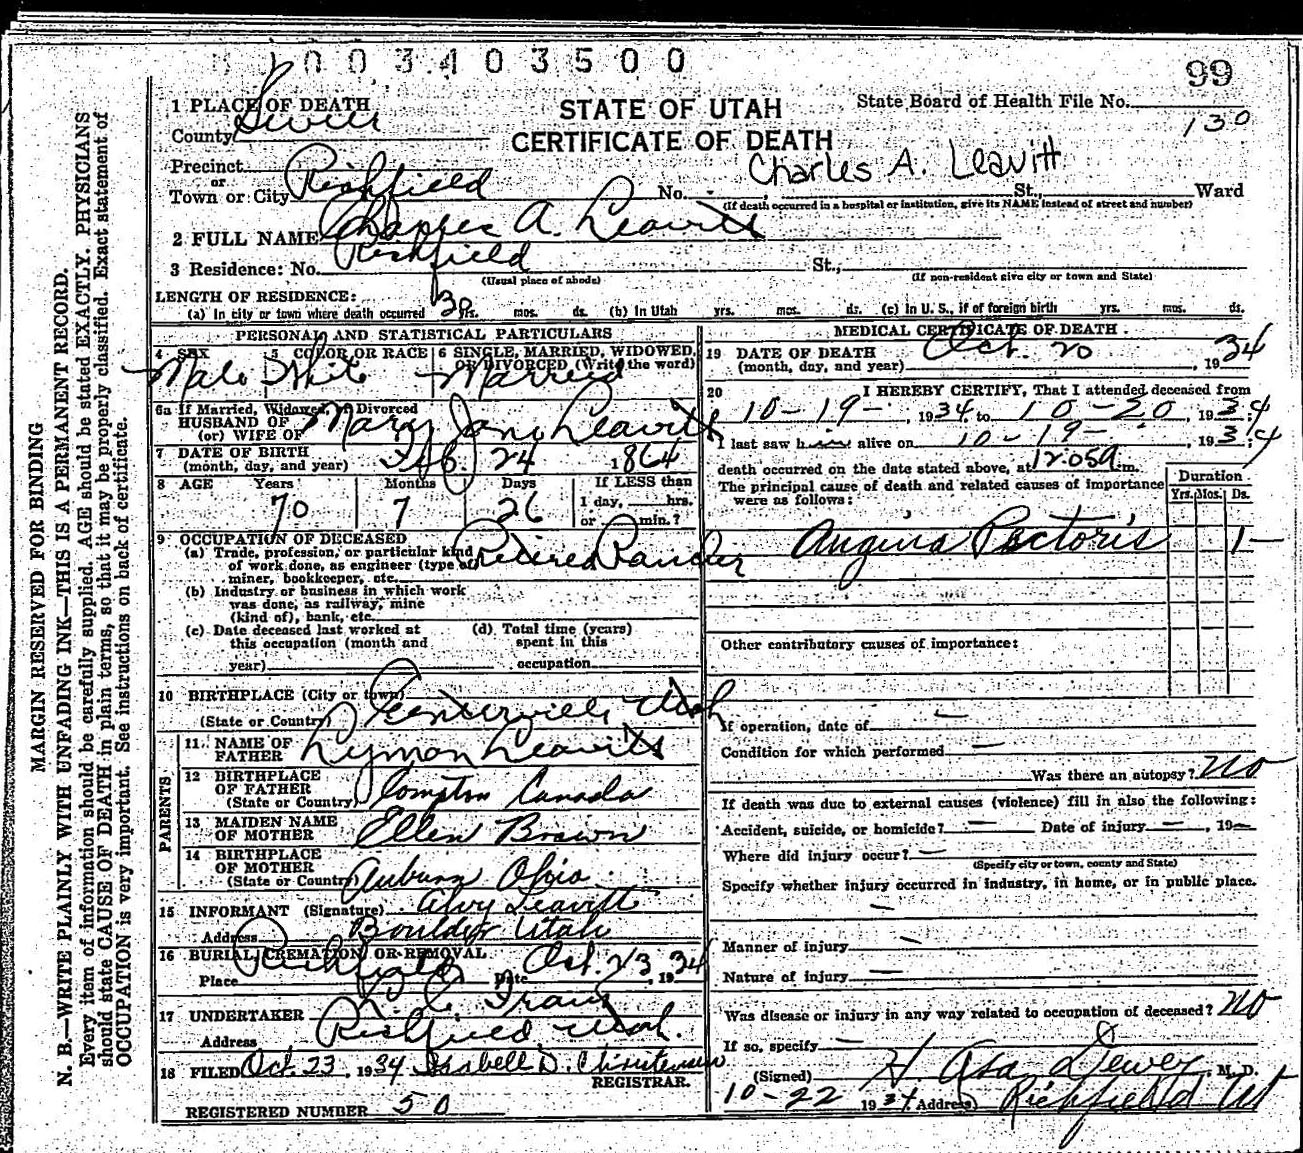 1003403500
99
1 PLACE OF DEATH
STATE OF UTAH
State Board of Health File No.
County Sevier
CERTIFICATE OF DEATH
130
Precinct
or
Charles A. Leavitt
Town or City Richfield No. - St., Ward
(If death occurred in a hospital or institution, give its NAME instead of street and number)
2 FULL NAME Charles A. Leavitt
3 Residence: No. Richfield St.,
(Usual place of abode) (If non-resident give city or town and State)
LENGTH OF RESIDENCE:
(a) In city or town where death occurred 30 yrs. mos. ds. (b) In Utah yrs. mos. ds. (c) In U. S., if of foreign birth yrs. mos. ds.
PERSONAL AND STATISTICAL PARTICULARS
4 SEX 5 COLOR OR RACE 6 SINGLE, MARRIED, WIDOWED, OR DIVORCED (Write the word)
Male White Married
6a If Married, Widowed, or Divorced
HUSBAND OF
(or) WIFE OF Mary Jane Leavitt
7 DATE OF BIRTH
(month, day, and year) Feb. 24 1864
8 AGE Years Months Days If LESS than
70 7 26 1 day, hrs.
or min.?
9 OCCUPATION OF DECEASED
(a) Trade, profession, or particular kind
of work done, as engineer (type of
miner, bookkeeper, etc. Retired Rancher
(b) Industry or business in which work
was done, as railway, mine
(kind of), bank, etc.
(c) Date deceased last worked at
this occupation (month and
year)
(d) Total time (years)
spent in this
occupation
10 BIRTHPLACE (City or town)
(State or Country) Centerville, Utah
PARENTS
11. NAME OF
FATHER Lyman Leavitt
12 BIRTHPLACE
OF FATHER
(State or Country) Compton Canada
13 MAIDEN NAME
OF MOTHER Ellen Brown
14 BIRTHPLACE
OF MOTHER
(State or Country) Auburn Ohio
15 INFORMANT (Signature) Alvy Leavitt
Address Boulder Utah
16 BURIAL, CREMATION OR REMOVAL
Place Richfield Date Oct. 23, 1934
17 UNDERTAKER
Address Richfield, Utah.
18 FILED Oct. 23, 1934 Isabell D. Christensen
REGISTRAR.
REGISTERED NUMBER 50
MEDICAL CERTIFICATE OF DEATH.
19 DATE OF DEATH
(month, day, and year) Oct. 20, 1934
20 I HEREBY CERTIFY, That I attended deceased from
10-19-, 1934, to 10-20, 1934
I last saw him alive on 10-19-, 1934
death occurred on the date stated above, at 12.05a m.
The principal cause of death and related causes of importance
were as follows:
Duration
Yrs. Mos. Ds.
Angina Pectoris 1-
Other contributory causes of importance:
If operation, date of —
Condition for which performed —
Was there an autopsy? No
If death was due to external causes (violence) fill in also the following:
Accident, suicide, or homicide? — Date of injury —, 19—
Where did injury occur? —
(Specify city or town, county and State)
Specify whether injury occurred in industry, in home, or in public place.
—
Manner of injury —
Nature of injury —
Was disease or injury in any way related to occupation of deceased? No
If so, specify —
(Signed) H Asa Dewey, M. D.
10-22 1934 (Address) Richfield Ut
MARGIN RESERVED FOR BINDING
N. B.—WRITE PLAINLY WITH UNFADING INK—THIS IS A PERMANENT RECORD.
Every item of information should be carefully supplied. AGE should be stated EXACTLY. PHYSICIANS
should state CAUSE OF DEATH in plain terms, so that it may be properly classified. Exact statement of
OCCUPATION is very important. See instructions on back of certificate.